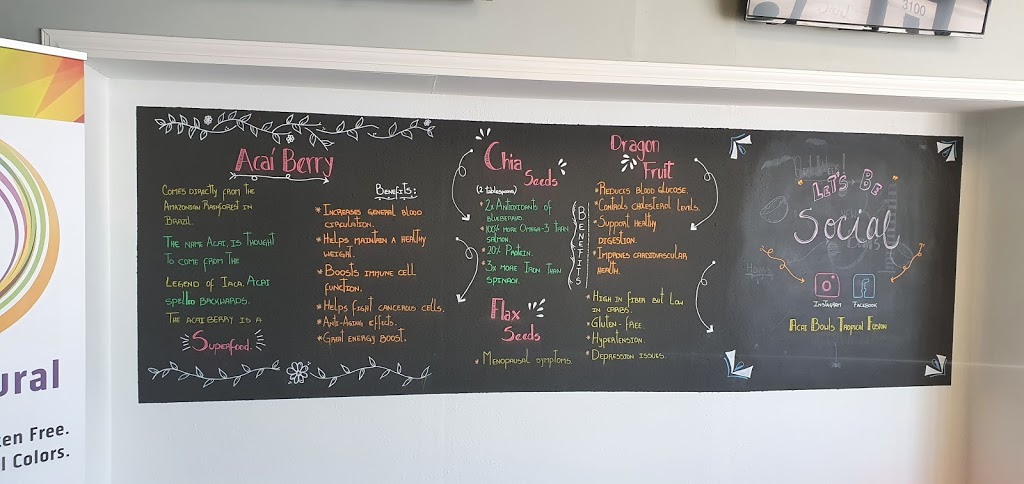 3100
ural
en Free.
l Colors.
Acaí Berry
Comes directly from the
Amazonian Rainforest in
Brazil.
The name Acai, is thought
To come from the
Legend of Iaca. Acai
spelled backwards.
The acai berry is a
Superfood.
Benefits:
* Increases general blood
circulation.
* Helps maintain a healthy
weight.
* Boosts immune cell
function.
* Helps fight cancerous cells.
* Anti-Aging effects.
* Great energy boost.
Chia
Seeds
(2 tablespoons)
* 2x Antioxidants of
blueberries.
* 100% more Omega-3 than
salmon.
* 20% Protein.
* 3x more Iron than
spinach.
Benefits
Flax
Seeds
* Menopausal symptoms.
Dragon
Fruit
* Reduces blood glucose.
* Controls cholesterol levels.
* Support healthy
digestion.
* Improves cardiovascular
health.
* High in fiber but Low
in carbs.
* Gluten-free.
* Hypertension.
* Depression issues.
Let's Be
Social
Instagram
Facebook
Acai Bowls Tropical Fusion